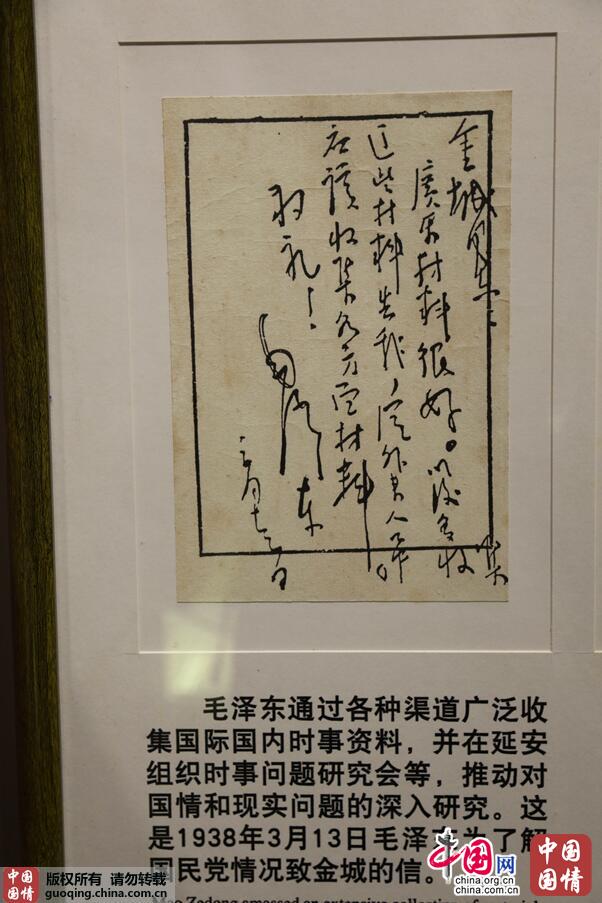 金城同志：
材料很好。以後多收集
这些材料告我，外人
应该收集各方面材料
敬礼！
毛泽东
三月十三日
毛泽东通过各种渠道广泛收
集国际国内时事资料，并在延安
组织时事问题研究会等，推动对
国情和现实问题的深入研究。这
是1938年3月13日毛泽东为了解
国民党情况致金城的信。
中国国情
版权所有 请勿转载
guoqing.china.com.cn
中国网
china.org.cn
china.com.cn
中国国情